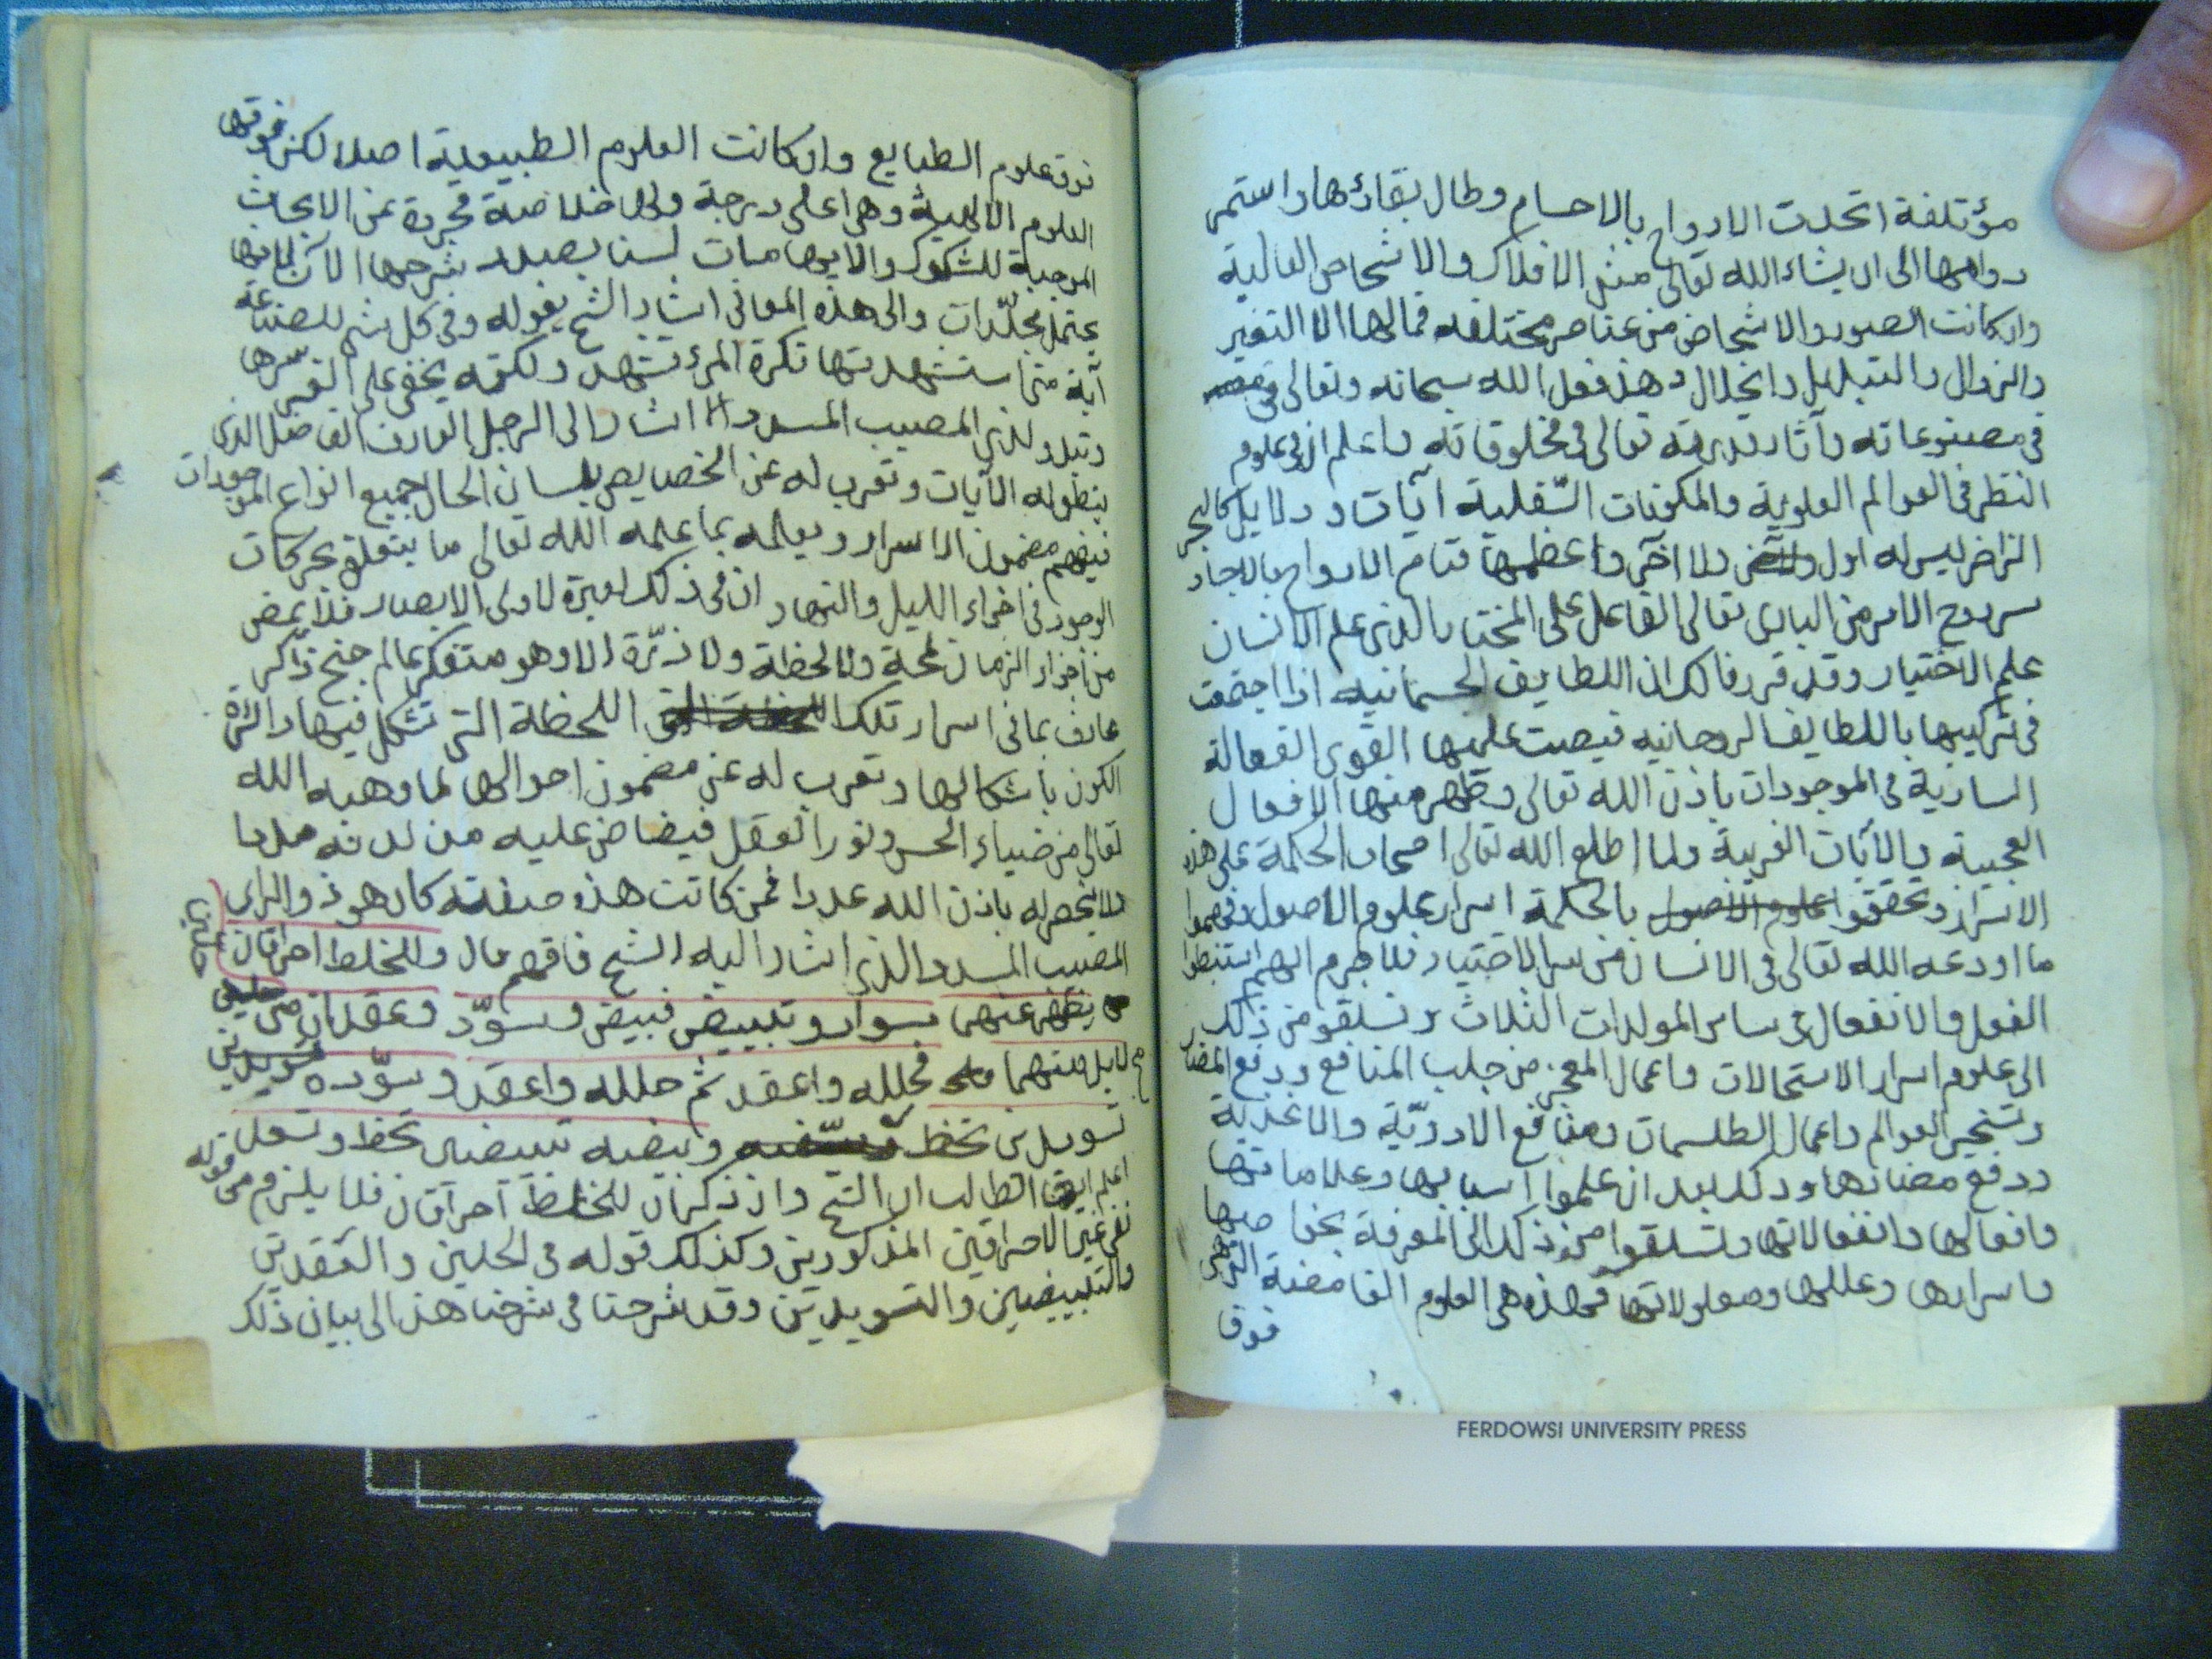 مؤتلفة اتحدت الارواح بالاجسام وطال بقاؤها واستمر
دوامها الى ان يشاء الله تعالى مثل الافلاك والاشخاص العالية
وان كانت الصور والاشخاص من عناصر مختلفه فمالها الا التغير
والزوال والتبديل وانحلال وهذ فعل الله سبحانه وتعالى فى
فى مصنوعاته وآثار قدرته تعالى فى مخلوقاته واعلم ان فى علوم
النظر فى العوالم العلوية والمكونات السّفلية آيات ودلايل كالبحر
الزاخر ليس له اول ولا آخر واعظمها قيام الارواح بالاجساد
سر روح الامر من البارى تعالى الفاعل على المختار الذى علم الانسان
علم الاختيار وقد قررنا لك ان اللطايف الجسمانيه اذا اجتمعت
فى تركيبها باللطايف الروحانيه فيصبت عليها القوى الفعالة
السارية فى الموجودات باذن الله تعالى وظهر منها الافعال
العجيبة والآيات الغريبة ولما اطلع الله تعالى اصحاب الحكمة على هذه
الاسرار وتحققوا علوم الاصول بالحكمة اسرار علوم الاصول وفهموا
ما اودعه الله تعالى فى الانسان من سر الاختيار فلا جرم انهم استنبطوا
الفعل والانفعال فى ساير المولدات الثلاث وتسلقو من ذلك
الى علوم اسرار الاستحالات واعمال المعجز من جلب المنافع ودفع المضار
وتسخير العوالم واعمال الطلسمات ومنافع الادويّة والاغذية
ودفع مضارها وذلك بعد ان علموا اسبابها وعلاماتها
وافعالها وانفعالاتها وتسلقوا من ذلك الى المعرفة بخواصها
واسرارها وعللها ومعلولاتها فهذه هى العلوم الغامضة التى هى
فوق
فوق علوم الطبايع وان كانت العلوم الطبيعية اصلا لكن فوقها
العلوم الالهية وهى اعلى درجة ولها خلاصة مجردة عن الابحاث
الموجبة للشكوك والايهامات لسنا بصدد شرحها الآن لانها
يحتمل مجلّدات والى هذه المعانى اشار الشيخ بقوله وفى كل شىء للصناعة
آية متى استشهدتها تكرة المرء تشهد ولكنه يخفى على الغمر سرها
وتبدو لذى المصيب المسدد اشار الى الرجل العارف الفاضل الذى
ينطق له الآيات وتعرب له عن الخصايص بلسان الحال جميع انواع الموجودات
فيفهم مضمون الاسرار ويعلمه بما علمه الله تعالى ما يتعلق بحركات
الوجود فى اجزاء الليل والنهار ان فى ذلك لعبرة لاولى الابصار فلا يمضى
من اجزاء الزمان لمحة ولا لحظة ولا ذرّة الا وهو متفكر عالم جنح ذاكر
عارف بما فى اسرار تلك اللحظة التى تشكل فيها دائرة
الكون باشكالها وتعرب له عن مضمون احوالها لما وهبه الله
تعالى من ضياء الحس ونور العقل فيضا ض عليه من لدنه مددا
ولا نحصر له باذن الله عددا فمن كانت هذه صفته كان هو ذو الراى
المصيب المسدد الذى اشار اليه الشيخ فافهم قال وللخلط احراقان
يظهر عنهما سواد وتبييض فبيض وسوّد وعقدان من حلين
لابل منهما فحلله واعقد ثم حلله واعقد وسوّده تسويدين
تسويدين تحظ وبيضه تبييضين تحظ وتسعد
اعلم ايها الطالب ان الشيخ وان ذكر ان للخلط احراقان فلا يلزم من قوله
نفى غير الاحراقين المذكورين وكذلك قوله فى الحلين والعقدين
والتبييضين والتسويدين وقد شرحنا فى شرحنا هذا الى بيان ذلك
حلين
FERDOWSI UNIVERSITY PRESS